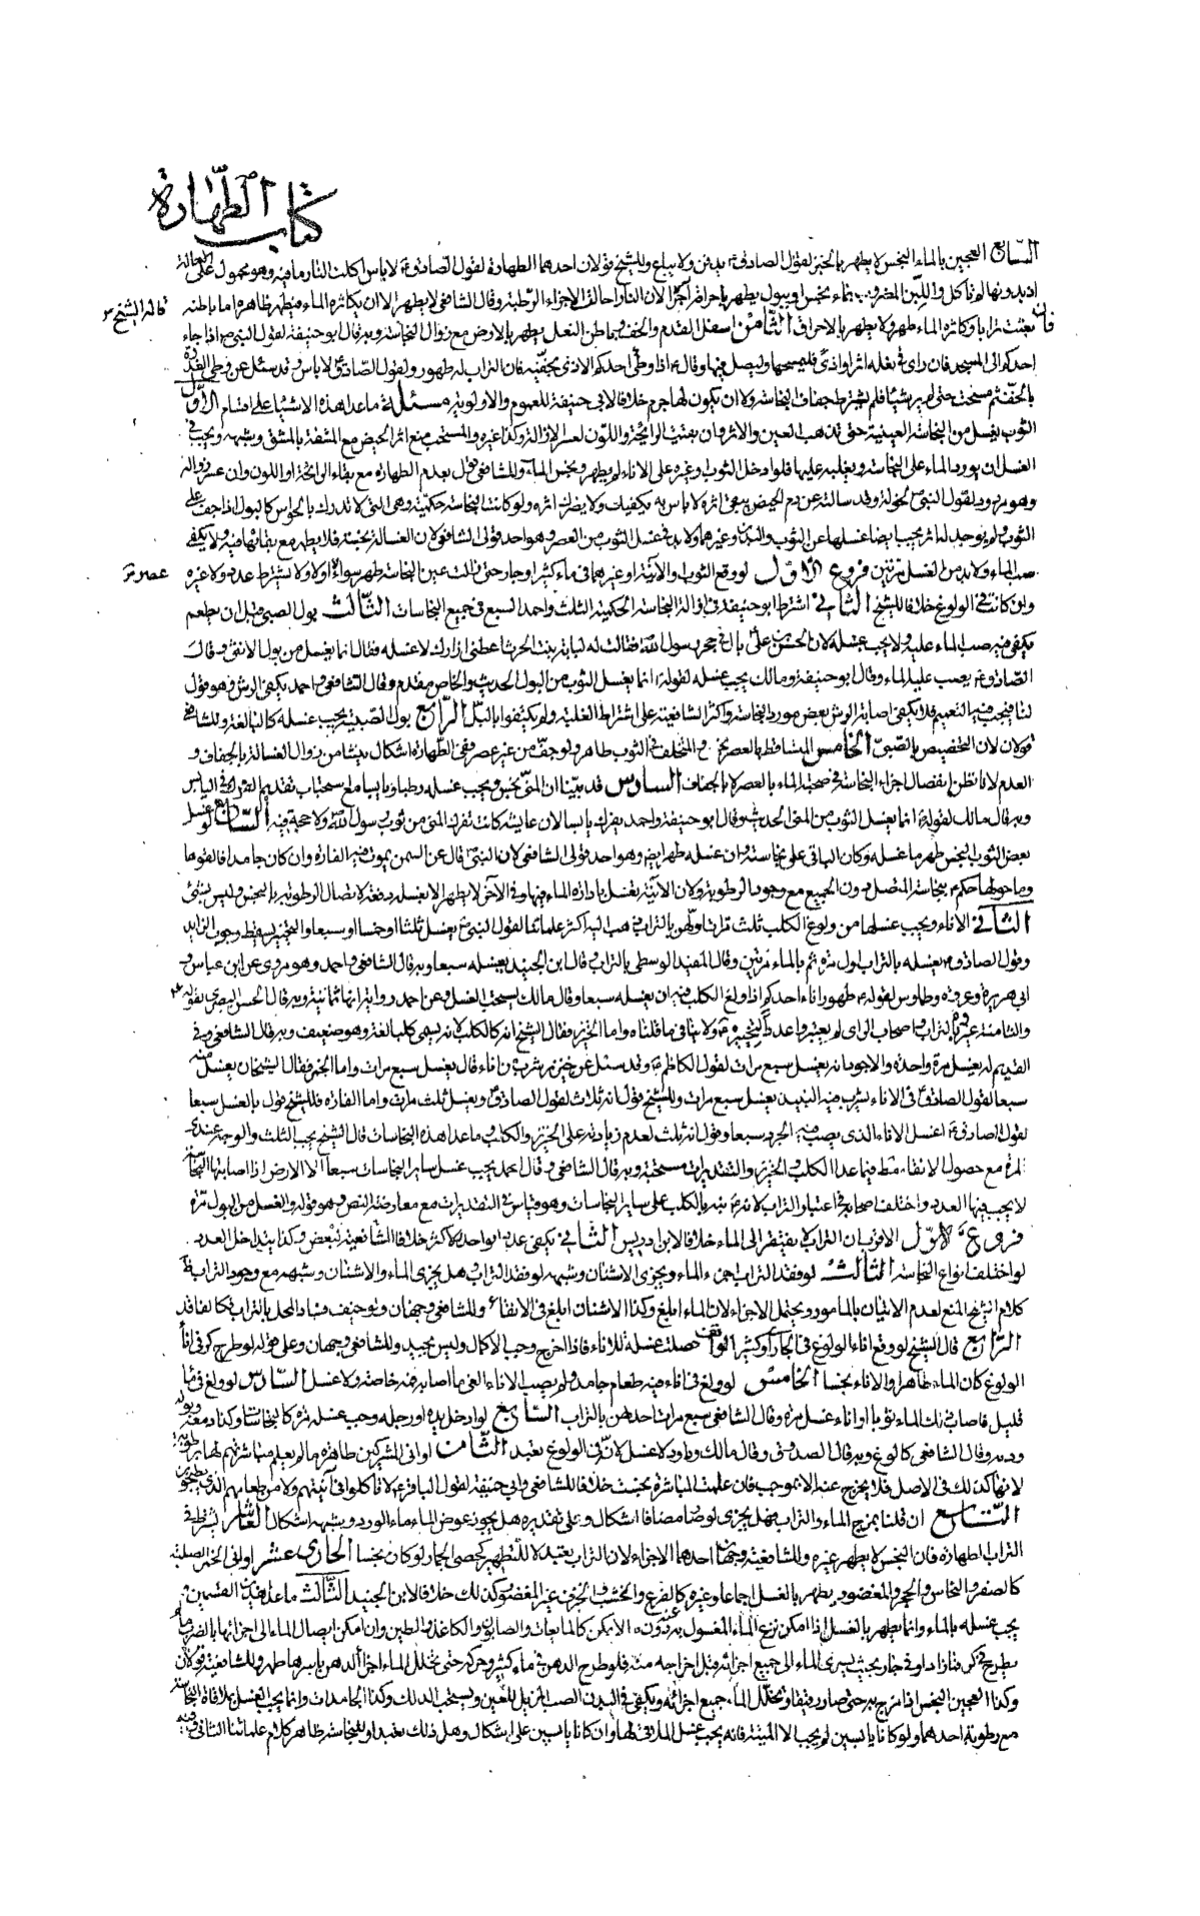 كتاب الطهارة
السابع العجين بالماء النجس لا يطهر بالخبز لقول الصادق ع يدفن ولا يباع وللشيخ قولان احدهما الطهارة لقول الصادق ع لا باس اكلت النار ما فيه وهو محمول على احالة
قاله الشيخ
بعثت ترابا وكاثره الماء طهر ولا يطهر بالاحراق الثامن اسفل القدم والخف وباطن النعل يطهر بالارض مع زوال النجاسة وبه قال ابو حنيفة لقول النبي ص اذا جاء
احدكم الى المسجد فان راى في نعله اثرا واذى فليمسحها وليصل فيها وقال ع اذا وطئ احدكم الاذى بخفيه فان التراب له طهور ولقول الصادق ع لا باس وقد سئل عن وطى العذرة
بالخف ثم مسحت حتى لم ير شيئا فلم يشترط جفاف النجاسة ولا ان يكون لها جرم خلافا لابي حنيفة للعموم والاولوية مسئلة ما عدا هذه الاشياء على اقسام الاول
الثوب يغسل من النجاسة العينية حتى تذهب العين والاثر وان بقيت الرايحة واللون لعسر الازالة وكذا غيره والمستحب صبغ اثر الحيض مع المشقة بالمشق وشبهه ويجب في
الغسل ان يورد الماء على النجاسة ويغلبه عليها فلو ادخل الثوب وغيره على الاناء لم يطهر ونجس الماء وللشافعي قول بعدم الطهارة مع بقاء الرايحة او اللون وان عسر زواله
وهو مردود لقول النبي ص لخولة وقد سالته عن دم الحيض يبقى اثره لا باس به يكفيك ولا يضرك اثره ولو كانت النجاسة حكمية وهي التي لا تدرك بالحواس كالبول اذا جف على
الثوب ولم يوجد له اثر يجب ايضا غسلها عن الثوب والبدن وغيرهما ولا بد في غسل الثوب من العصر وهو احد قولي الشافعي لان الغسالة نجسة فلا يطهر مع بقائها فيه ولا يكفي
صب الماء ولا بد من الغسل مرتين فروع الاول لو وقع الثوب والآنية او غيرهما في ماء كثير او جار حتى زالت عين النجاسة طهر سواء عصر او لا ولا يشترط عدد ولا غيره
وان كانت في الولوغ خلافا للشيخ الثاني اشترط ابو حنيفة في ازالة النجاسة الحكمية الثلث واحمد السبع في جميع النجاسات الثالث بول الصبي قبل ان يطعم
يكفي فيه صب الماء عليه ولا يجب غسله لان الحسن بن علي ع بال في حجر رسول الله فقالت له لبابة بنت الحرث اعطني ازارك لاغسله فقال انما يغسل من بول الانثى وقال
الصادق ع يصب عليه الماء وقال ابو حنيفة ومالك يجب غسله لقوله ع انما يغسل الثوب من البول الحديث والخاص مقدم وقال الشافعي واحمد يكفي الرش وهو قول
لنا فيجب فيه التعميم فلا يكفي اصابة الرش بعض مورد النجاسة واكثر الشافعية على اشتراط الغلبة ولم يكتفوا بالبل الرابع بول الصبية يجب غسله كالبالغة وللشافعي
قولان لان التخصيص بالصبي الخامس المتساقط بالعصر نجس والمتخلف في الثوب طاهر ولو جف من غير عصر ففي الطهارة اشكال ينشا من زوال الغسالة بالجفاف و
العدم لانا نظن انفصال اجزاء النجاسة في صحبة الماء بالعصر لا بالجفاف السادس قد بينا ان المني نجس ويجب غسله رطبا ويابسا مع استحباب تقديم الفرك في اليابس
وبه قال مالك لقوله ع انما يغسل الثوب من المني الحديث وقال ابو حنيفة واحمد يفرك يابسا لان عايشة كانت تفرك المني من ثوب رسول الله ولا حجة فيه السابع لو غسل
بعض الثوب النجس طهر ما غسله وكان الباقي على نجاسته وان غسله طهر ايضا وهو احد قولي الشافعي لان النبي ص قال عن السمن يموت فيه الفارة وان كان جامدا فالقوها
وما حولها حكم ع بنجاسة المتصل دون الجميع مع وجود الرطوبة ولان الآنية يغسل بادارة الماء فيها وفي الآخر لا يطهر الا بغسله دفعة لاتصال الرطوبة بالنجس وليس بشئ
الثاني الاناء ويجب غسلها من ولوغ الكلب ثلث مرات اولهن بالتراب ذهب اليه اكثر علمائنا لقول النبي ص يغسل ثلثا او خمسا او سبعا والتخيير يسقط وجوب الزايد
وقول الصادق ع يغسله بالتراب اول مرة ثم بالماء مرتين وقال المفيد الوسطى بالتراب وقال ابن الجنيد يغسله سبعا وبه قال الشافعي واحمد وهو مروي عن ابن عباس و
ابي هريرة وعروة وطاوس لقوله ع طهور اناء احدكم اذا ولغ الكلب فيه ان يغسله سبعا وقال مالك يستحب الغسل وعن احمد رواية انها ثمانية وبه قال الحسن البصري لقوله ع
والثامنة عفروه بالتراب واصحاب الراي لم يعتبروا عددا لتخييره ع ولا ينافي ما قلناه واما الخنزير فقال الشيخ انه كالكلب لانه يسمى كلبا لغة وهو ضعيف وبه قال الشافعي وفي
القديم له يغسل مرة واحدة والاجود انه يغسل سبع مرات لقول الكاظم ع وقد سئل عن خنزير شرب من اناء قال يغسل سبع مرات واما الخمر فقال الشيخان يغسل منه
سبعا لقول الصادق ع في الاناء يشرب فيه النبيذ يغسل سبع مرات وللشيخ قول انه ثلاث لقول الصادق ع ويغسل ثلث مرات واما الفارة فللشيخ قول بالغسل سبعا
لقول الصادق ع اغسل الاناء الذي يصيب فيه الجرذ سبعا وقول انه ثلث لعدم زيادته على الخنزير والكلب وما عدا هذه النجاسات قال الشيخ يجب الثلث والوجه عندي
المرة مع حصول الانقاء فقط فيما عدا الكلب والخنزير والتقديرات مستحبة وبه قال الشافعي وقال احمد يجب غسل ساير النجاسات سبعا الا الارض اذا اصابتها النجاسة
لا يجب فيها العدد واختلف اصحابه في اعتبار التراب لانه ع نبه بالكلب على ساير النجاسات وهو قياس في التقديرات مع معارضة النص وهو قوله والغسل من البول مرة
فروع الاول الاقرب ان التراب لا يفتقر الى الماء خلافا لابن ادريس الثاني يكفي عدد الواحد للاكثر خلافا لشافعية لبعض وكذا يتداخل العدد
لو اختلف انواع النجاسة الثالث لو فقد التراب اجزء الماء ويجزى الاشنان وشبهه لو فقد التراب وهل يجزى الماء والاشنان وشبهه مع وجود التراب في
كلام الشيخ المنع لعدم الاتيان بالمامور ويحتمل الاجزاء لان الماء ابلغ وكذا الاشنان ابلغ في الانقاء وللشافعي وجهان ولو خيف فساد المحل بالتراب فكالفاقد
الرابع قال الشيخ لو وقع اناء الولوغ في الجاري او كثير الواقف حصلت غسلة للاناء فاذا اخرج وجب الاكمال وليس بجيد وللشافعي وجهان وعلى قوله لو طرح كر في اناء
الولوغ كان الماء طاهرا والاناء نجسا الخامس لو ولغ في اناء فيه طعام جامد ولم يصب الاناء القي ما اصابه فمه خاصة ولا غسل السادس لو ولغ في ماء
قليل فاصاب ذلك الماء ثوبا او اناء غسل مرة وقال الشافعي سبع مرات احدهن بالتراب السابع لو ادخل يده او رجله وجب غسله مرة كالنجاسات وكذا دمعه وبوله
ودمه وقال الشافعي كالولوغ وبه قال الصدوق وقال مالك وداود لا غسل لان في الولوغ تعبد الثامن اواني المشركين طاهرة ما لم يعلم مباشرتهم لها برطوبة
لانها كذلك في الاصل فلا يخرج عنه الا بموجب فان علمت المباشرة نجست خلافا للشافعي وابي حنيفة لقول الباقر ع لا تاكلوا في آنيتهم ولا من طعامهم الذي يطبخون
التاسع ان قلنا بمزج الماء والتراب فهل يجزى لو صار مضافا اشكال وعلى تقديره هل يجوز عوض الماء ماء الورد وشبهه اشكال العاشر يشترط في
التراب الطهارة فان النجس لا يطهر غيره وللشافعية وجهان احدهما الاجزاء لان التراب تعبد لا للتطهير كحصى الجمار لو كان نجسا الحادي عشر اواني الخمر الصلبة
كالصفر والنحاس والحجر والمغضور يطهر بالغسل اجماعا وغيره كالقرع والخشب والخزف غير المغضور كذلك خلافا لابن الجنيد الثالث ما عدا هذين القسمين و
يجب غسله بالماء وانما يطهر بالغسل اذا امكن نزع الماء المغسول به عنه دون ما لا يمكن كالمايعات والصابون والكاغذ والطين وان امكن ايصال الماء الى اجزائها بالضرب ما لم
يطرح في كر فما زاد او في جار بحيث يسري الماء الى جميع اجزائه قبل اخراجه منه فلو طرح الدهن في ماء كثير وحركه حتى تخلل الماء اجزاء الدهن باسرها طهر وللشافعية قولان
وكذا العجين النجس اذا مزج به حتى صار رقيقا وتخلل الماء جميع اجزائه ويكفي في البدن الصب المزيل للعين ويستحب الدلك وكذا الجامدات وانما يجب الغسل بملاقاة النجاسة
مع رطوبة احدهما ولو كانا يابسين لم يجب الا الميتة فانه يجب غسل الملاقي لها وان كانا يابسين على اشكال وهل ذلك تعبد او لنجاسته ظاهر كلام علمائنا الثاني وفيه